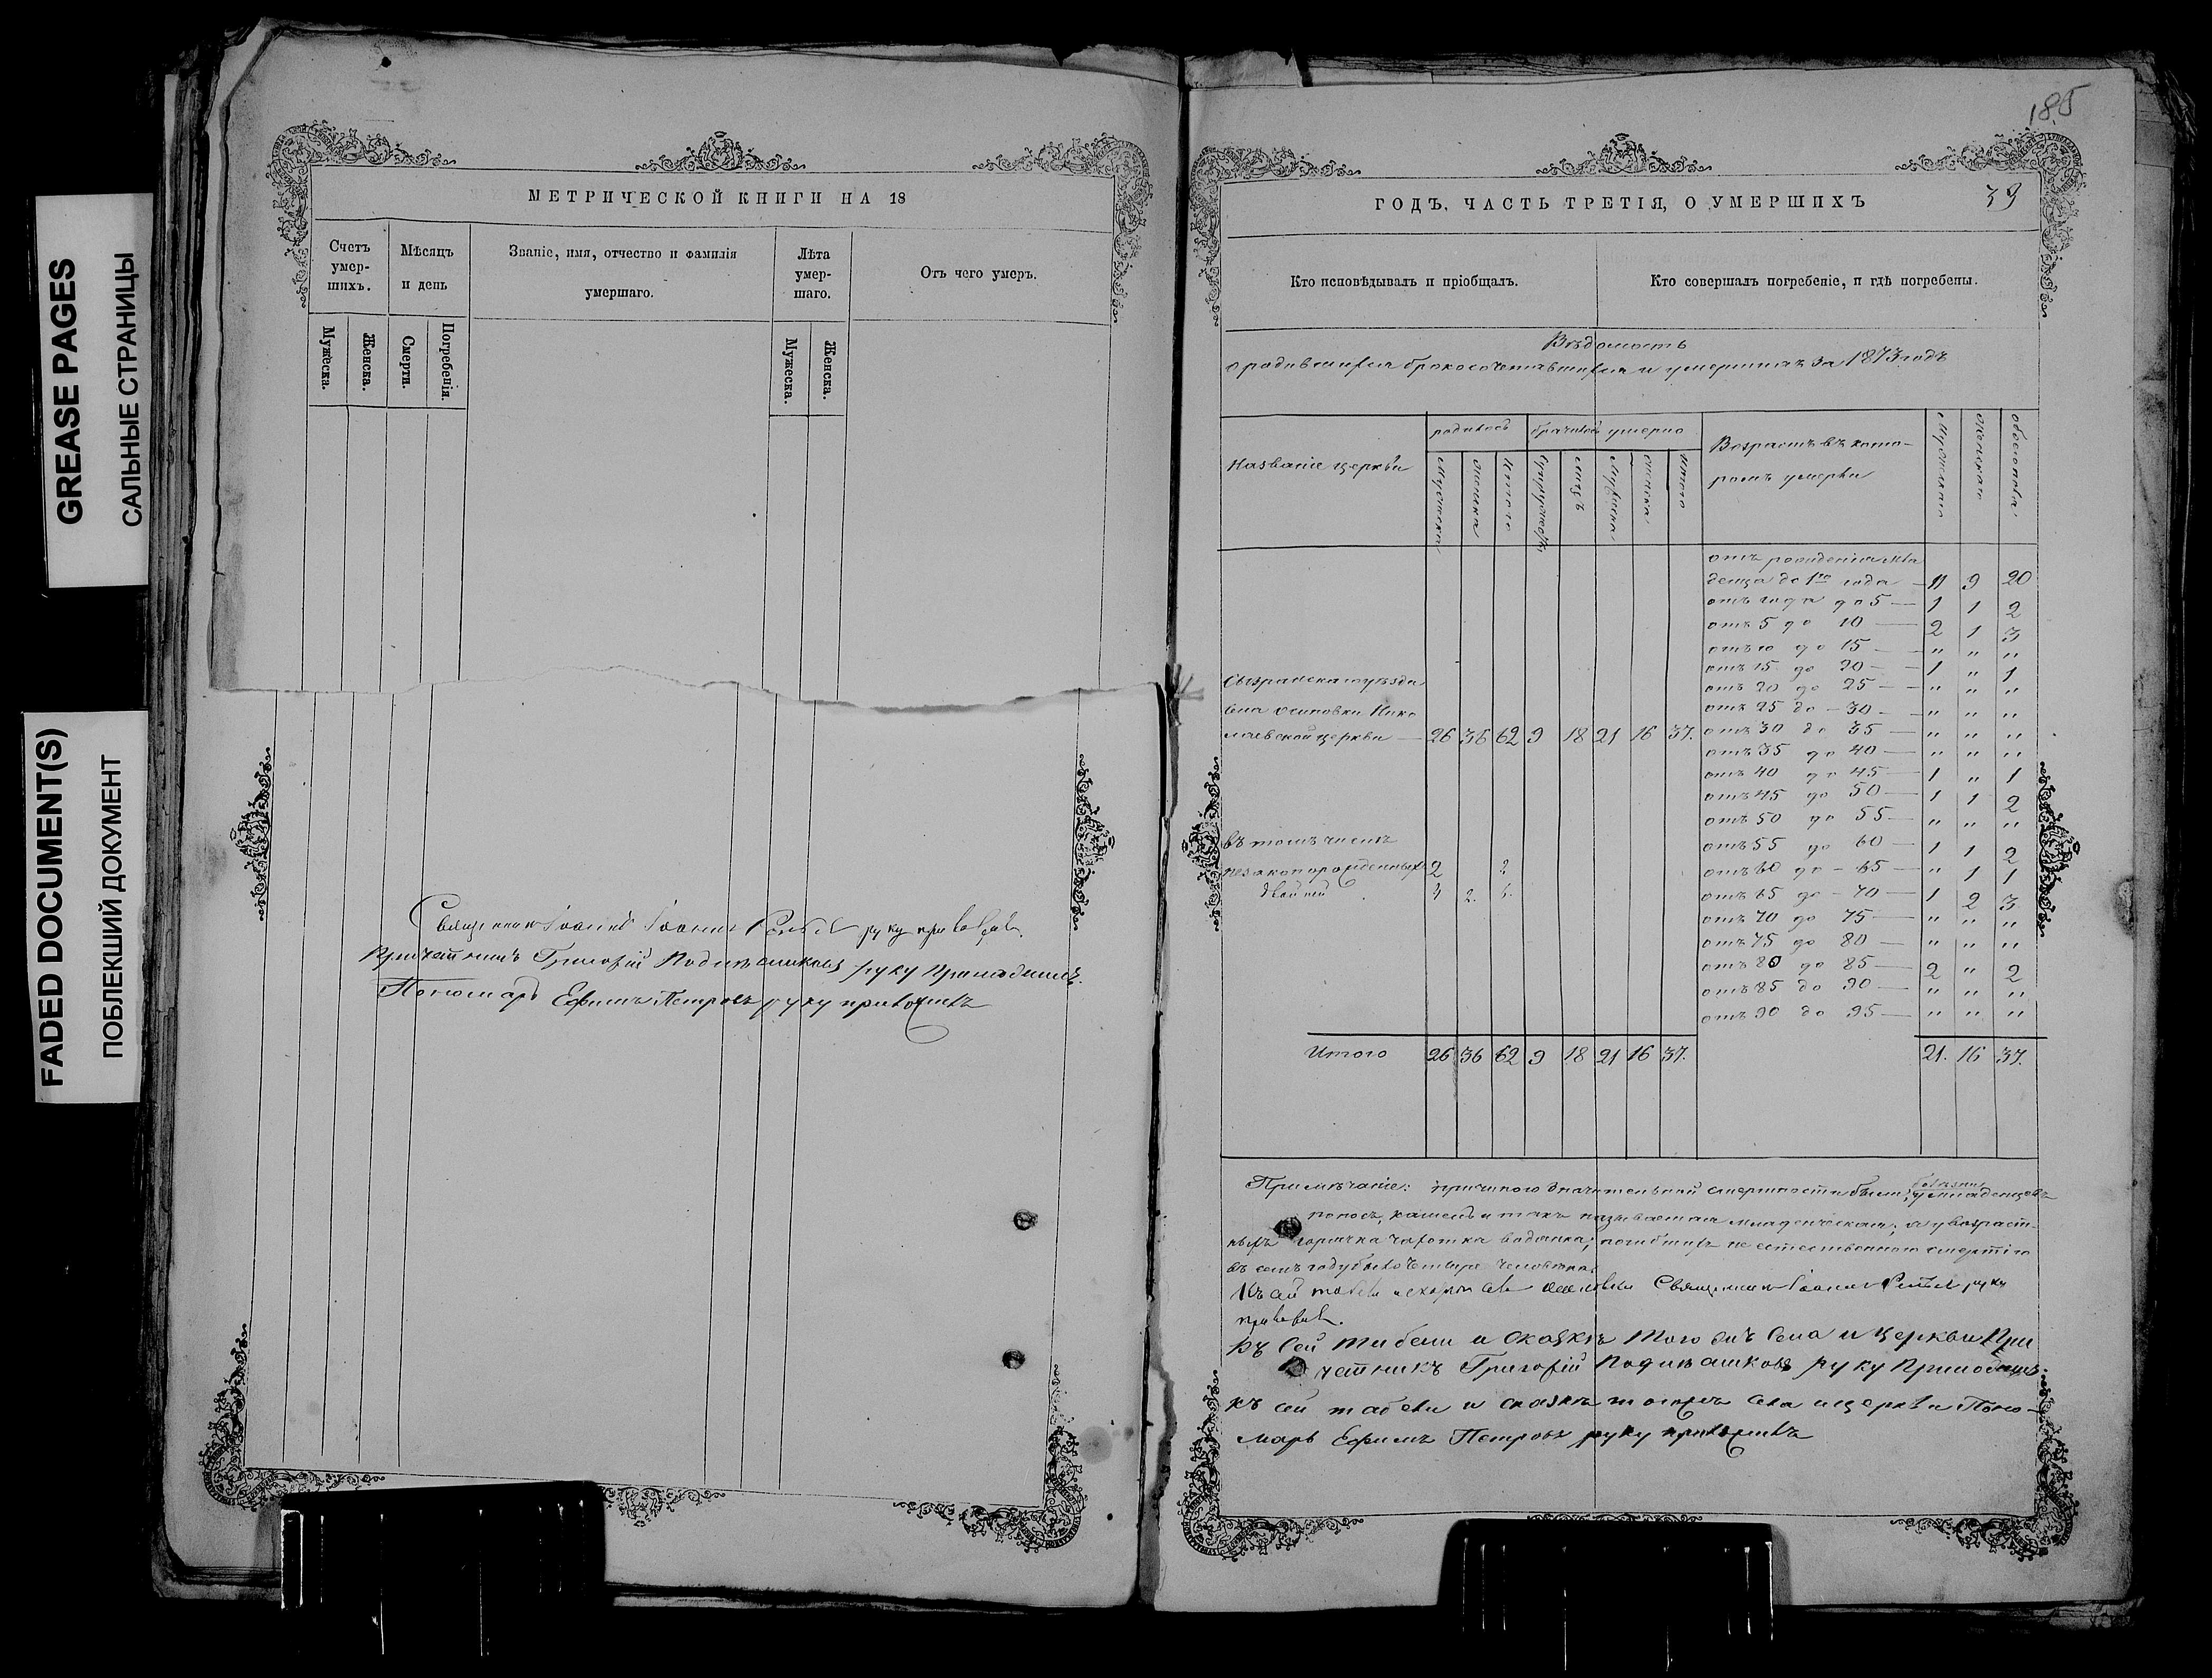 GREASE PAGES
САЛЬНЫЕ СТРАНИЦЫ
FADED DOCUMENT(S)
ПОБЛЕКШИЙ ДОКУМЕНТ
МЕТРИЧЕСКОЙ КНИГИ НА 18
Счетъ умер-шихъ.
Мѣсяцъ и день
Званіе, имя, отчество и фамилія умершаго.
Лѣта умер-шаго.
Отъ чего умеръ.
Мужеска.
Женска.
Смерти.
Погребенія.
Мужеска.
Женска.
Священникъ Іоаннъ Іоанновъ руку приложилъ.
Причетникъ Григорій руку Приложилъ.
Пономарь Ефимъ Петровъ руку приложилъ
185
39
ГОДЪ, ЧАСТЬ ТРЕТІЯ, О УМЕРШИХЪ
Кто исповѣдывалъ и пріобщалъ.
Кто совершалъ погребеніе, и гдѣ погребены.
Вѣдомость
о родившихся бракосочетавшихся и умершихъ за 1873 годъ
Названіе церкви
родилось
умерло
Возрастъ въ кото-
ромъ умерли
Мужеска
Женска
Итого
Лицъ
Мужеска
Женска
Итого
отъ рожденія мла
денца до 1го года — 11 9 20
отъ года до 5 — 1 1 2
отъ 5 до 10 — 2 1 3
отъ 10 до 15 — " " "
отъ 15 до 20 — 1 " 1
отъ 20 до 25 — " " "
отъ 25 до 30 — " " "
отъ 30 до 35 — " " "
отъ 35 до 40 — " " "
отъ 40 до 45 — 1 " 1
отъ 45 до 50 — 1 1 2
отъ 50 до 55 — " " "
отъ 55 до 60 — 1 1 2
отъ 60 до 65 — " 1 1
отъ 65 до 70 — 1 2 3
отъ 70 до 75 — " " "
отъ 75 до 80 — " " "
отъ 80 до 85 — 2 " 2
отъ 85 до 90 — " " "
отъ 90 до 95 — " " "
Сызранска уѣзда
села Осиповки Нико
лаевской церкви — 26 36 62 9 18 21 16 37.
въ томъ числѣ
незаконорожденныхъ 2 2
двойней
Итого 26 36 62 9 18 21 16 37. 21. 16 37.
Примѣчаніе: причиною значительной смертности были болѣзни у младенцевъ
поносъ, кашель и такъ называемая младенческая; а у возраст-
ныхъ горячка чахотка водянка; погибшихъ не естественною смертію
въ семъ году было четыре человѣка.
Къ сей Священникъ Іоаннъ руку
приложилъ.
Къ Сей табели и сказкѣ того жъ Села и церкви При
четникъ Григорій руку Приложилъ.
къ сей табели и сказкѣ того жъ села и церкви Поно-
марь Ефимъ Петровъ руку приложилъ